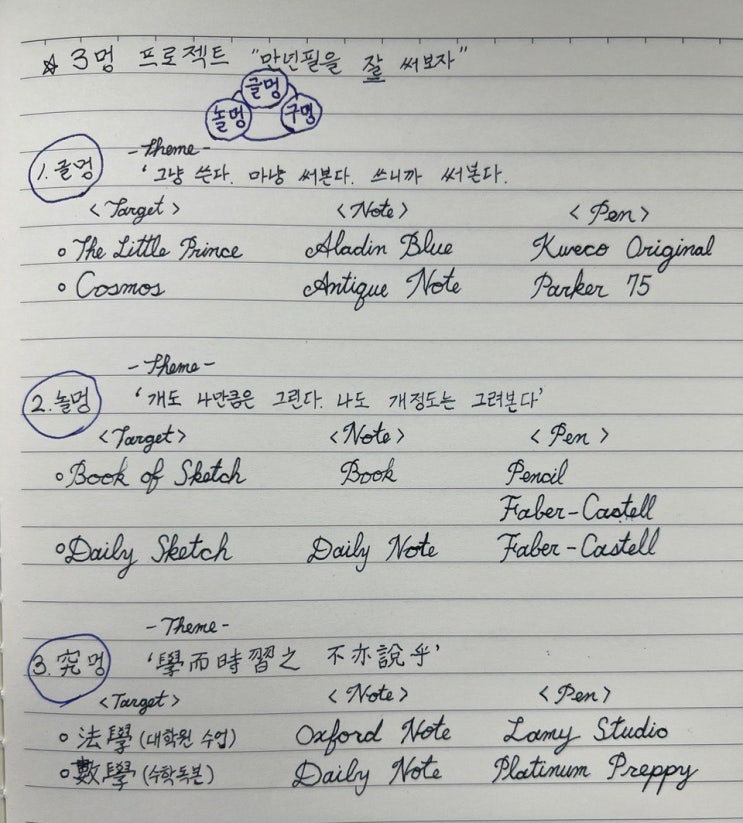 ☆ 3멍 프로젝트 "만년필을 잘 써보자"
글멍
놀멍 구멍
- Theme -
1. 글멍 '그냥 쓴다. 마냥 써본다. 쓰니까 써본다.
<Target> <Note> <Pen>
∘ The Little Prince Aladin Blue Kweco Original
∘ Cosmos Antique Note Parker 75
- Theme -
2. 놀멍 '개도 나만큼은 그린다. 나도 개정도는 그려본다'
<Target> <Note> <Pen>
∘ Book of Sketch Book Pencil
Faber-Castell
∘ Daily Sketch Daily Note Faber-Castell
- Theme -
3. 究멍 '學而時習之 不亦說乎'
<Target> <Note> <Pen>
∘ 法學 (대학원 수업) Oxford Note Lamy Studio
∘ 數學 (수학독본) Daily Note Platinum Preppy